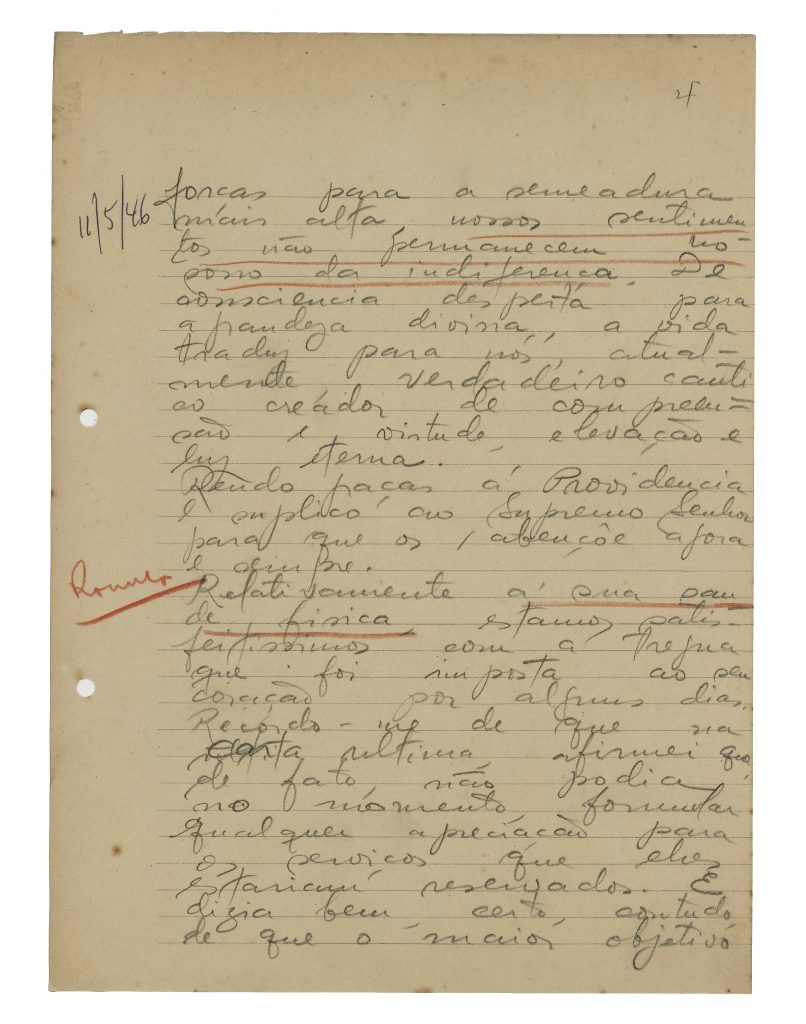 4
11/5/46
forças para a semeadura
mais alta, nossos sentimen
tos não permanecem no
poso da indiferença. De
consciencia desperta para
a grandeza divina, a vida
traduz para nós, atual-
mente, verdadeiro canti
co creador de compreen-
são e virtude, elevação e
luz eterna.
Rendo graças á Providencia
e suplico ao Supremo Senhor
para que os abençõe agora
e sempre.
Romulo
Relativamente á sua sau
de fisica, estamos satis-
feitissimos com a tregua
que foi imposta ao seu
coração por alguns dias.
Recordo-me de que na
carta ultima, afirmei que
de fato, não podia,
no momento, formular
qualquer apreciação para
os serviços que
estariam reservados. E
dizia bem certo, contudo,
de que o maior objetivo